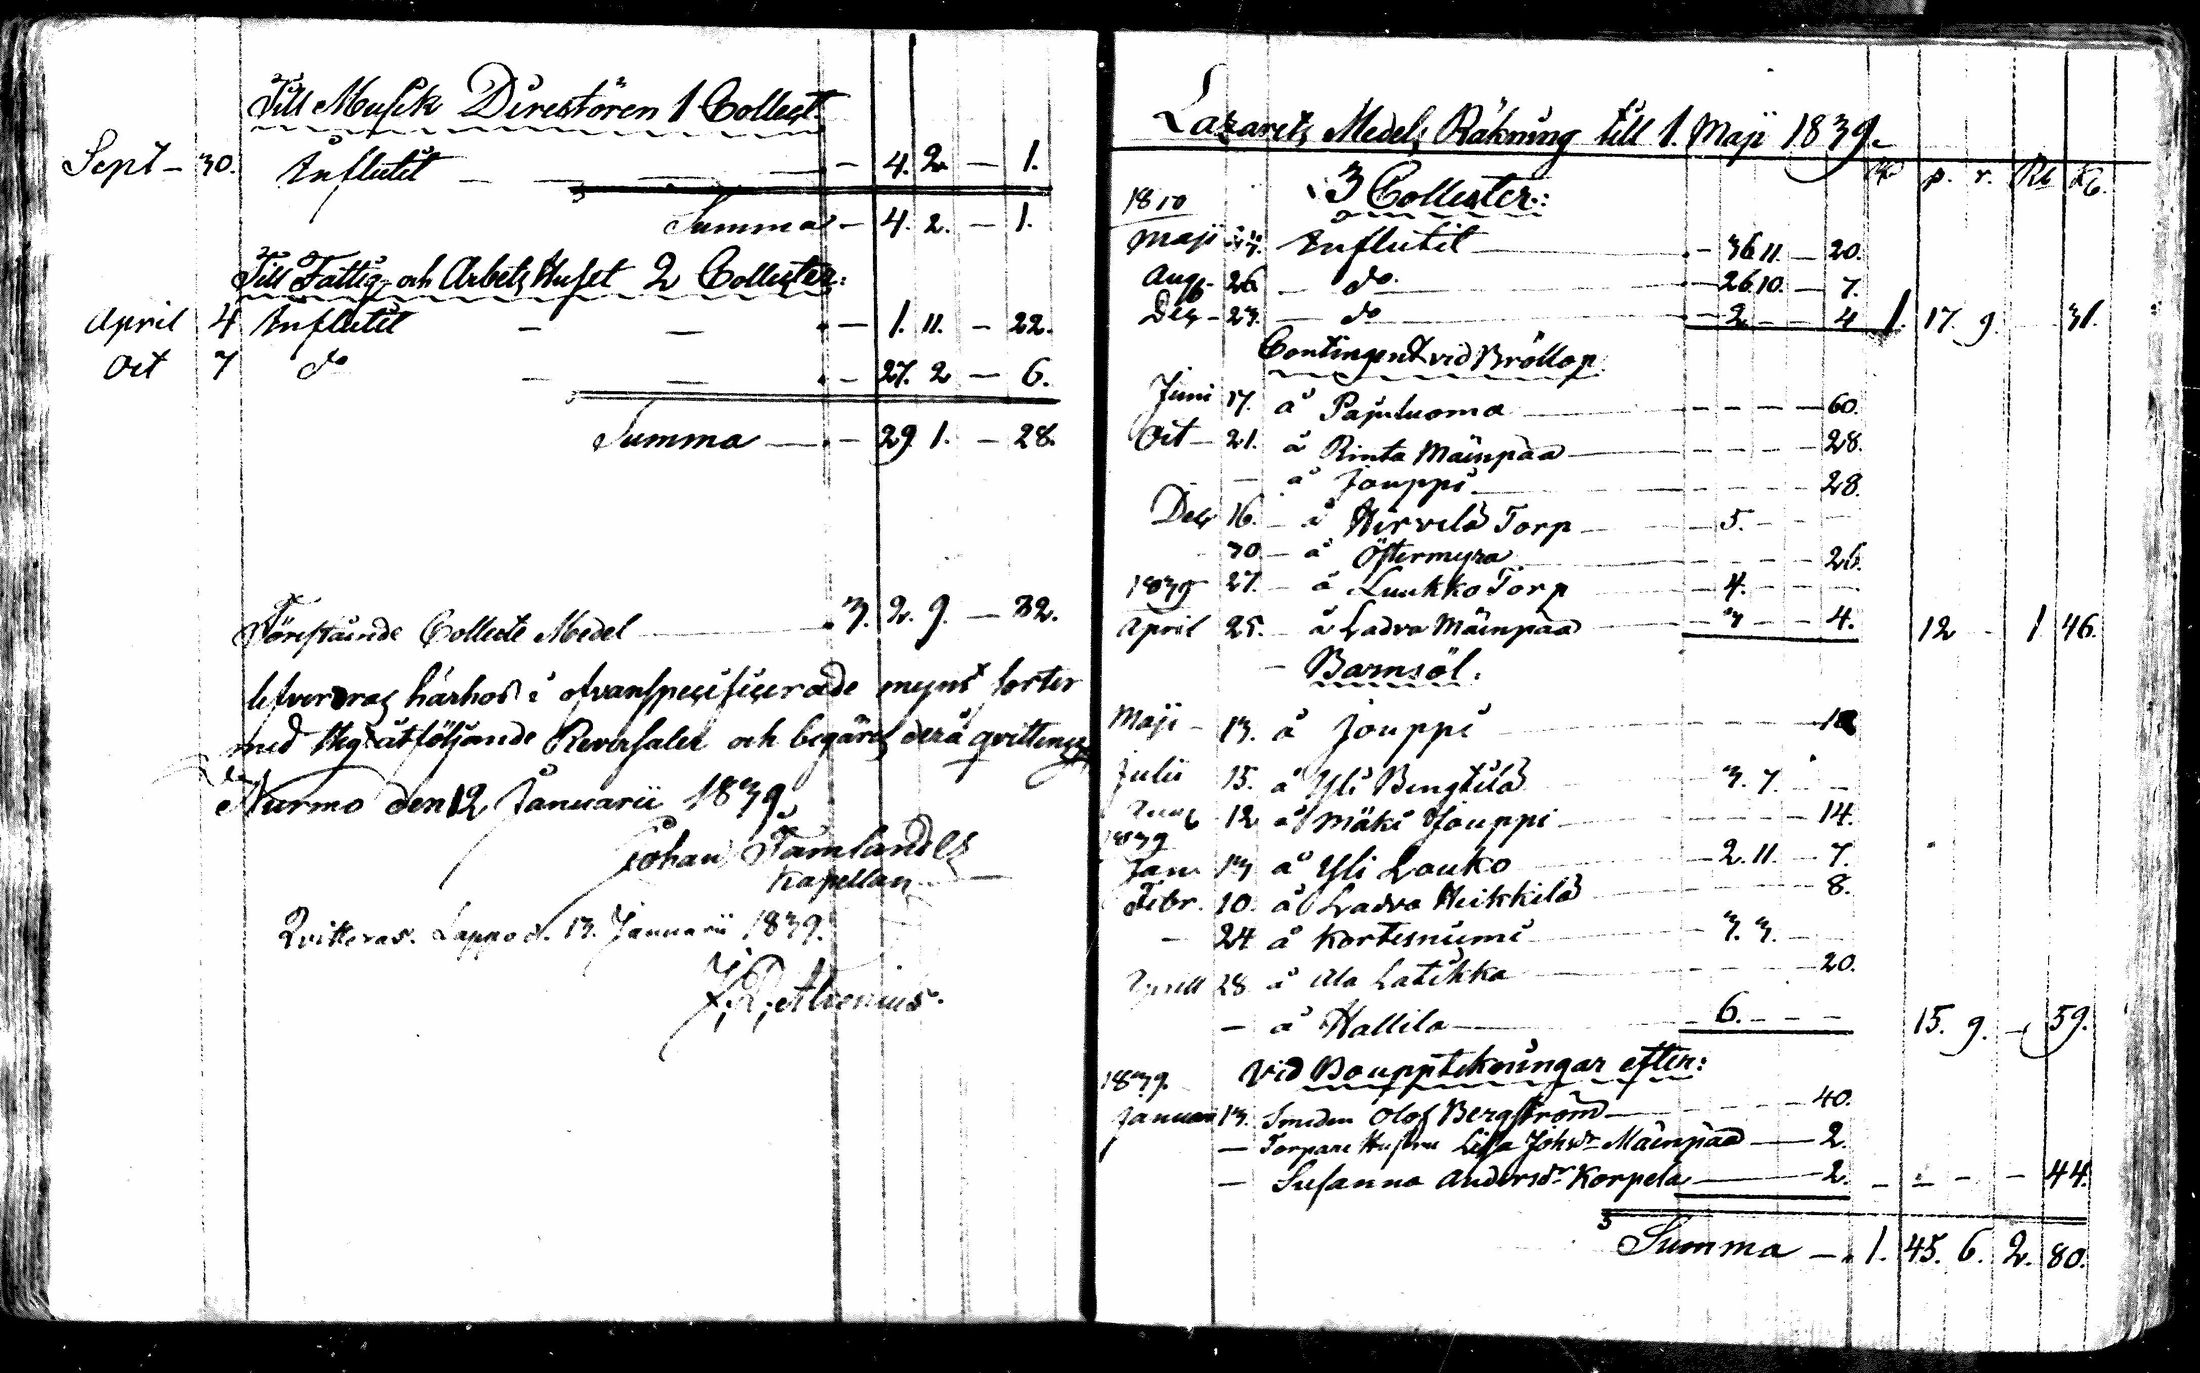 Till Musik Direktören 1 Collect.
Sept - 30. Influtit - - - - - 4. 2. - 1.
Summa - 4. 2. - 1.
Till Fattig- och Arbets Huset 2 Collecter:
April 4 Influtit - - - 1. 11. - 22.
Oct 7 do - - - 27. 2 - 6.
Summa - - 29 1. - 28.
Förestående Collecte Medel 3. 2. 9. - 32.
lefvereras härhos i ofvanspecificerade mynt sorter
med åtföljande Reversaler och begäres derå qvittens
Nurmo den 12 Januarii 1839.
Johan Tamlander
Kapellan
Qvitteras. Lappo d. 13. Januarii 1839.
J. D. Alcenius.
Lazarets Medels Räkning till 1. Maji 1839.
p. r. Rb K.
3 Collecter:
Maji Influtit - 36 11. - 20.
Aug 26 - do. - 26 10. - 7.
Dec - 23. - do - 2 - - 4 1. 17. 9. 31.
Contingent vid Bröllop.
Juni 17. å Pajuluoma - - - - 60.
Oct - 21. å Rinta Mäinpää - - - - 28.
- å Jouppi - - - - 28.
Dec 16. - å Hirvelä Torp - 5. - - -
30. - å Östermyra - - - - 26.
1839 27. - å Luukko Torp - 4. - - -
April 25. - å Ladva Mäinpää - 3 - - 4. 12 - 1 46.
- Barnsöl.
Maji - 13. å Jouppi - - - - 18
Julii 15. å Yli Bengtilä 3. 7. - -
Aug 12 å Mäki Jouppi - - - - 14.
1839
Jan. 13 å Yli Louko - 2. 11. - 7.
Febr. 10. å Ladva Heikkilä - - - - 8.
- 24 å Kortesniemi 3. 3. - -
Aprill 28 å Ala Latikka - - - - 20.
- å Hallila - 6. - - - 15. 9. - 59.
1839. Vid Bouppteckningar efter:
Januari 13. Smeden Olof Bergström - - - - 40.
- Torpare Hustru Lisa Johsdr Mäinpää - 2.
- Susanna Andersdr Korpela - 2. - - - - 44.
Summa - 1. 45. 6. 2. 80.